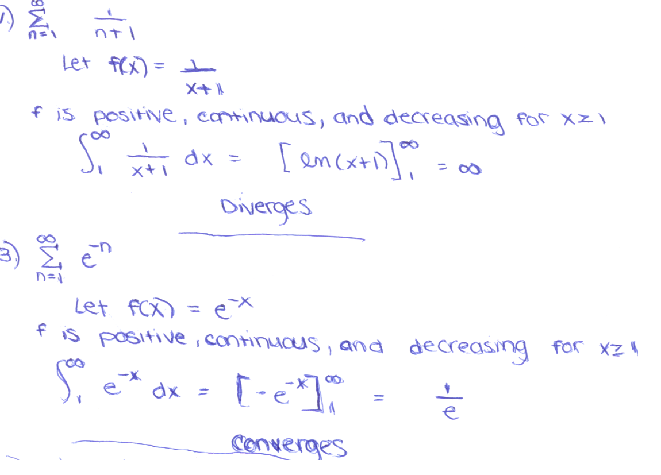 1.) ∞∑n=1 1/(n+1)
Let f(x) = 1/(x+1)
f is positive, continuous, and decreasing for x≥1
∫₁^∞ 1/(x+1) dx = [ln(x+1)]₁^∞ = ∞
Diverges
3.) ∞∑n=1 e^-n
Let f(x) = e^-x
f is positive, continuous, and decreasing for x≥1
∫₁^∞ e^-x dx = [-e^-x]₁^∞ = 1/e
Converges